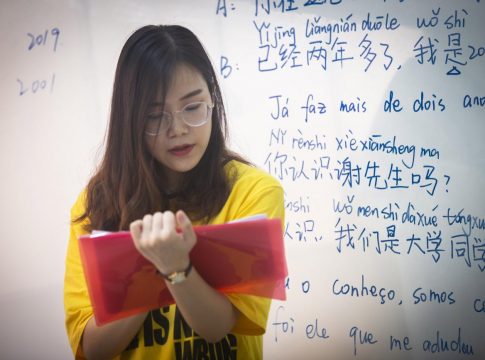 2019
2001
A: 你在
Yǐjīng liǎngnián duōle wǒ shì
B: 已经两年多了, 我是20
Já faz mais de dois
Nǐ rènshi xiè xiānsheng ma
你认识谢先生吗?
wǒmenshì dàxué tóngxué
认识, 我们是大学同学
o conheço, somos co
foi ele que me adudou